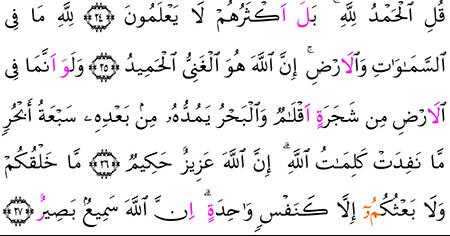 قُلِ الْحَمْدُ لِلَّهِ ۚ بَلَ اَكْثَرُهُمْ لَا يَعْلَمُونَ ﴿٢٤﴾ لِلَّهِ مَا فِى
السَّمَٰوَٰتِ وَالَارْضِ ۚ إِنَّ اللَّهَ هُوَ الْغَنِىُّ الْحَمِيدُ ﴿٢٥﴾ وَلَوَ اَنَّمَا فِى
الَارْضِ مِن شَجَرَةٍ اَقْلَٰمٌ وَالْبَحْرُ يَمُدُّهُۥ مِنۢ بَعْدِهِۦ سَبْعَةُ أَبْحُرٍ
مَّا نَفِدَتْ كَلِمَٰتُ اللَّهِ ۗ إِنَّ اللَّهَ عَزِيزٌ حَكِيمٌ ﴿٣٦﴾ مَّا خَلْقُكُمْ
وَلَا بَعْثُكُمُۥٓ إِلَّا كَنَفْسٍ وَٰحِدَةٍ ۗ اِنَّ اللَّهَ سَمِيعٌۢ بَصِيرٌ ﴿٣٧﴾